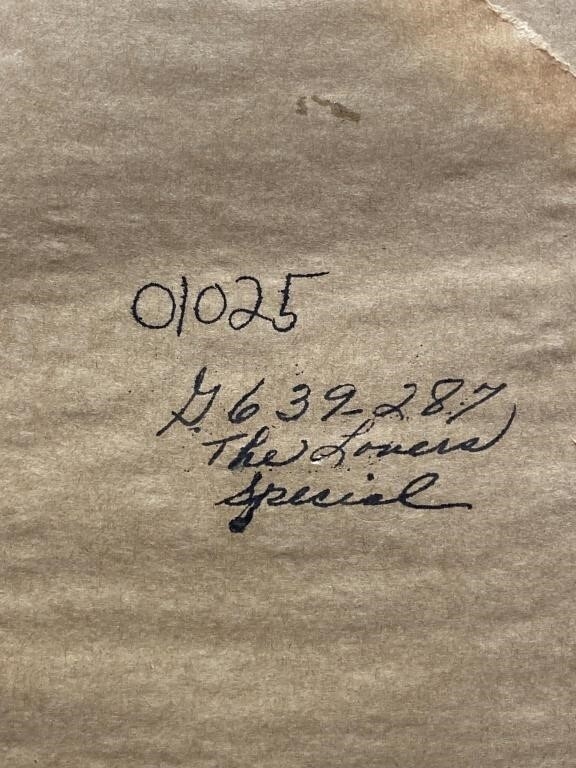 01025
G639-287
The Lovers
Special